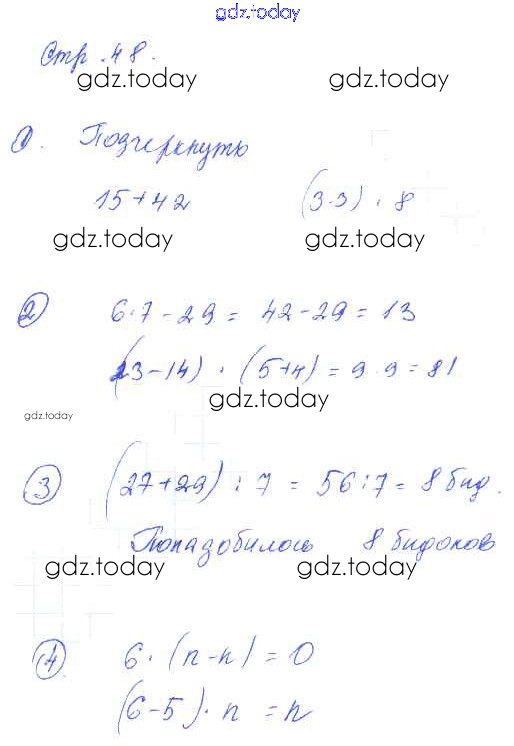 gdz.today
Стр 48.
gdz.today gdz.today
1. Подчеркнуто
15+42 (3·3)·8
gdz.today gdz.today
2 6·7-29 = 42-29 = 13
(23-14)·(5+4) = 9·9 = 81
gdz.today gdz.today
3 (27+29):7 = 56:7 = 8 бид.
Понадобилось 8 бидонов
gdz.today gdz.today
4 6·(n-n) = 0
(6-5)·n = n
gdz.today gdz.today